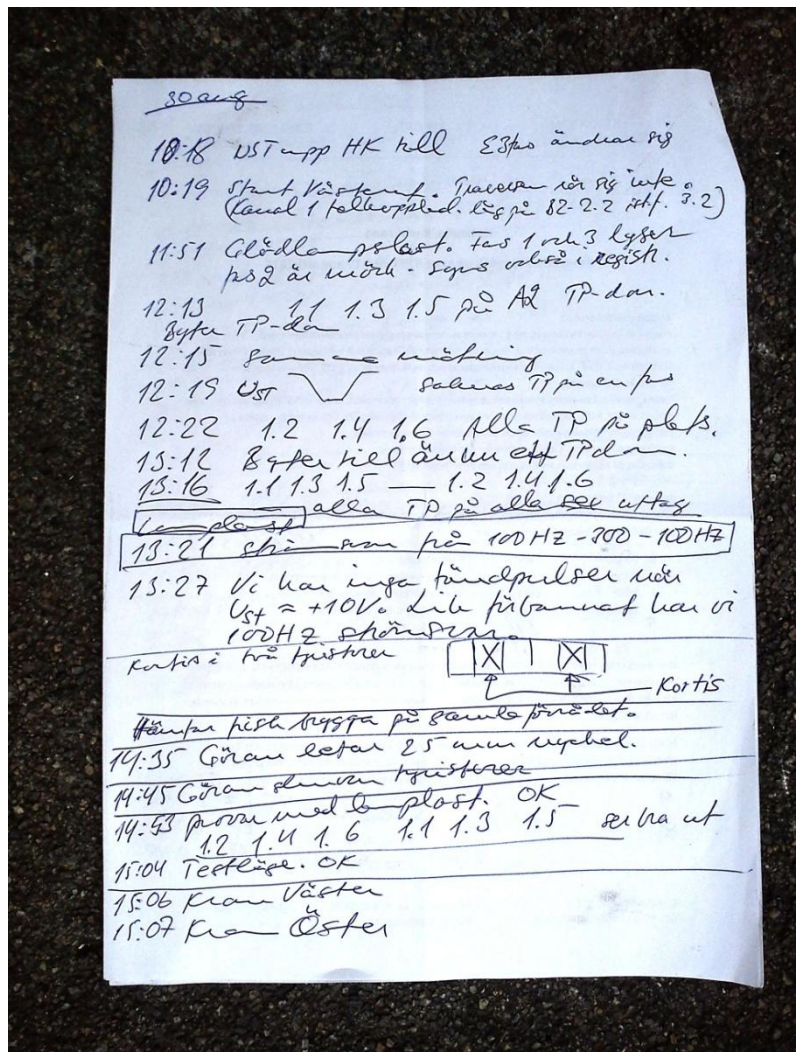 30 aug
10:18 UST upp HK till ändrar sig
10:19 Start Västerut. Traversen rör sig inte
(Kanal 1 felkopplad. låg på 82-2.2 istf. 3.2)
11:51 Glödlampslast. Fas 1 och 3 lyser
fas 2 är mörk - syns också i registr.
12:13 1.1 1.3 1.5 på A2 TP-don.
Byter TP-don
12:15 Samma mätning
12:19 UST Saknas TP på en fas
12:22 1.2 1.4 1.6 Alla TP på plats.
13:12 Byter till ännu ett TPdon.
13:16 1.1 1.3 1.5 — 1.2 1.4 1.6
Lamplast alla TP på alla sex uttag
13:21 strömsvar från 100HZ - 300 - 100HZ
13:27 Vi har inga tändpulser när
UST ≈ +10V. Lik förbannat har vi
100HZ strömsvar.
Kortis i två tyristorer
Kortis
Hämtar frisk brygga på gamla förrådet.
14:35 Göran letar 25 mm nyckel.
14:45 Göran skruvar tyristorer
14:53 provar med lamplast. OK
1.2 1.4 1.6 1.1 1.3 1.5 ser bra ut
15:04 Testläge. OK
15:06 Kran Väster
15:07 Kran Öster